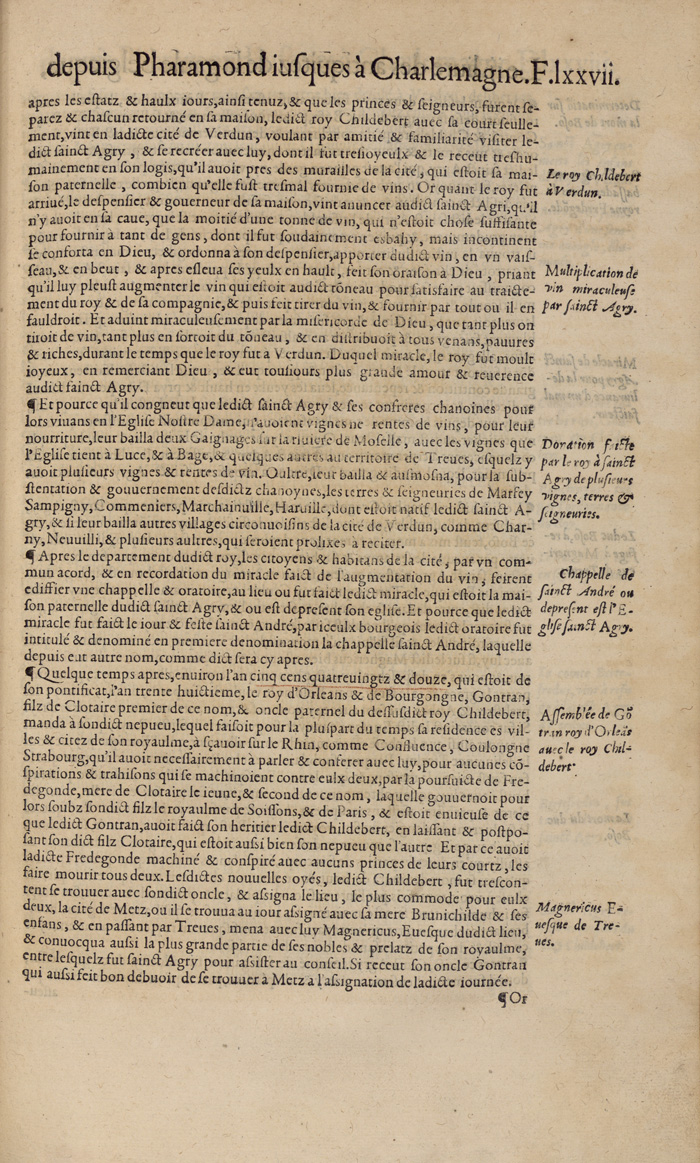 depuis Pharamond iusques à Charlemagne. F.lxxvii.
apres les estatz & haulx iours, ainsi tenuz, & que les princes & seigneurs, furent se-
parez & chascun retourné en sa maison, ledict roy Childebert auec sa court seulle-
ment, vint en ladicte cité de Verdun, voulant par amitié & familiarité visiter le-
dict sainct Agry , & se recréer auec luy, dont il fut tresioyeulx & le receut treshu-
mainement en son logis, qu'il auoit pres des murailles de la cité, qui estoit sa mai-
son paternelle , combien qu'elle fust tresmal fournie de vins. Or quant le roy fut
Le roy Childebert
arriué, le despensier & gouerneur de sa maison, vint anuncer audict sainct Agri, qu'il
à Verdun.
n'y auoit en sa caue, que la moitié d'une tonne de vin, qui n'estoit chose suffisante
pour fournir à tant de gens, dont il fut soudainement esbahy, mais incontinent
se conforta en Dieu, & ordonna à son despensier, apporter dudict vin, en vn vais-
seau, & en beut , & apres esleua ses yeulx en hault, feit son oraison à Dieu , priant
Multiplication de
qu'il luy pleust augmenter le vin qui estoit audict tõneau pour satisfaire au traicte-
vin miraculeuse
ment du roy & de sa compagnie, & puis feit tirer du vin, & fournir par tout ou il en
par sainct Agry.
fauldroit. Et aduint miraculeusement par la misericorde de Dieu, que tant plus on
tiroit de vin, tant plus en sortoit du tõneau, & en distribuoit à tous venans, pauures
& riches, durant le temps que le roy fut a Verdun. Duquel miracle, le roy fut moult
ioyeux, en remerciant Dieu , & eut tousiours plus grande amour & reuerence
audict sainct Agry.
¶ Et pource qu'il congneut que ledict sainct Agry & ses confreres chanoines pour
lors viuans en l'Eglise Nostre Dame, n'auoient vignes ne rentes de vins, pour leur
nourriture, leur bailla deux Gaignages sur la riuiere de Moselle, auec les vignes que
Donation faicte
l'Eglise tient à Luce, & à Bage, & quelques autres au territoire de Treues, esquelz y
par le roy à sainct
auoit plusieurs vignes & rentes de vin. Oultre, leur bailla & aulmosna, pour la sub-
Agry de plusieurs
stentation & gouuernement desdictz chanoynes, les terres & seigneuries de Marsey
vignes, terres &
Sampigny, Commeniers, Marchainuille, Haruille, dont estoit natif ledict sainct A-
seigneuries.
gry, & si leur bailla autres villages circonuoisins de la cité de Verdun, comme Char-
ny, Neuuilli, & plusieurs aultres, qui seroient prolixes à reciter.
¶ Apres le departement dudict roy, les citoyens & habitans de la cité, par vn com-
Chappelle de
mun acord, & en recordation du miracle faict de l'augmentation du vin, feirent
sainct André ou
ediffier vne chappelle & oratoire, au lieu ou fut faict ledict miracle, qui estoit la mai-
depresent est l'E-
son paternelle dudict sainct Agry, & ou est depresent son eglise. Et pource que ledict
glise sainct Agry.
miracle fut faict le iour & feste sainct André, par iceulx bourgeois ledict oratoire fut
intitulé & denominé en premiere denomination la chappelle sainct André, laquelle
depuis eut autre nom, comme dict sera cy apres.
¶ Quelque temps apres, enuiron l'an cinq cens quatreuingtz & douze, qui estoit de
son pontificat, l'an trente huictieme, le roy d'Orleans & de Bourgongne, Gontran,
filz de Clotaire premier de ce nom, & oncle paternel du dessusdict roy Childebert,
Assemblée de Gõ
manda à sondict nepueu, lequel faisoit pour la pluspart du temps sa residence es vil-
tran roy d'Orleãs
les & citez de son royaulme, à sçauoir sur le Rhin, comme Confluence, Coulongne
auec le roy Chil-
Strabourg, qu'il auoit necessairement à parler & conferer auec luy, pour aucunes cõ-
debert.
spirations & trahisons qui se machinoient contre eulx deux, par la poursuicte de Fre-
degonde, mere de Clotaire le ieune, & second de ce nom, laquelle gouuernoit pour
lors soubz sondict filz le royaulme de Soissons, & de Paris , & estoit enuieuse de ce
que ledict Gontran, auoit faict son heritier ledict Childebert, en laissant & postpo-
sant son dict filz Clotaire, qui estoit aussi bien son nepueu que l'autre Et par ce auoit
ladicte Fredegonde machiné & conspiré auec aucuns princes de leurs courtz, les
faire mourir tous deux. Lesdictes nouuelles oyés, ledict Childebert , fut trescon-
tent se trouuer auec sondict oncle, & assigna le lieu , le plus commode pour eulx
deux, la cité de Metz, ou il se trouua au iour assigné auec sa mere Brunichilde & ses
Magnericus E-
enfans , & en passant par Treues, mena auec luy Magnericus, Euesque dudict lieu,
uesque de Tre-
& conuocqua aussi la plus grande partie de ses nobles & prelatz de son royaulme,
ues.
entre lesquelz fut sainct Agry pour assister au conseil. Si receut son oncle Gontran
qui aussi feit bon debuoir de se trouuer à Metz à l'assignation de ladicte iournée.
¶ Or